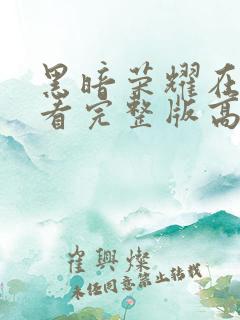 黑暗荣耀在
看完整版高
崔兴灿
未经同意禁止转载